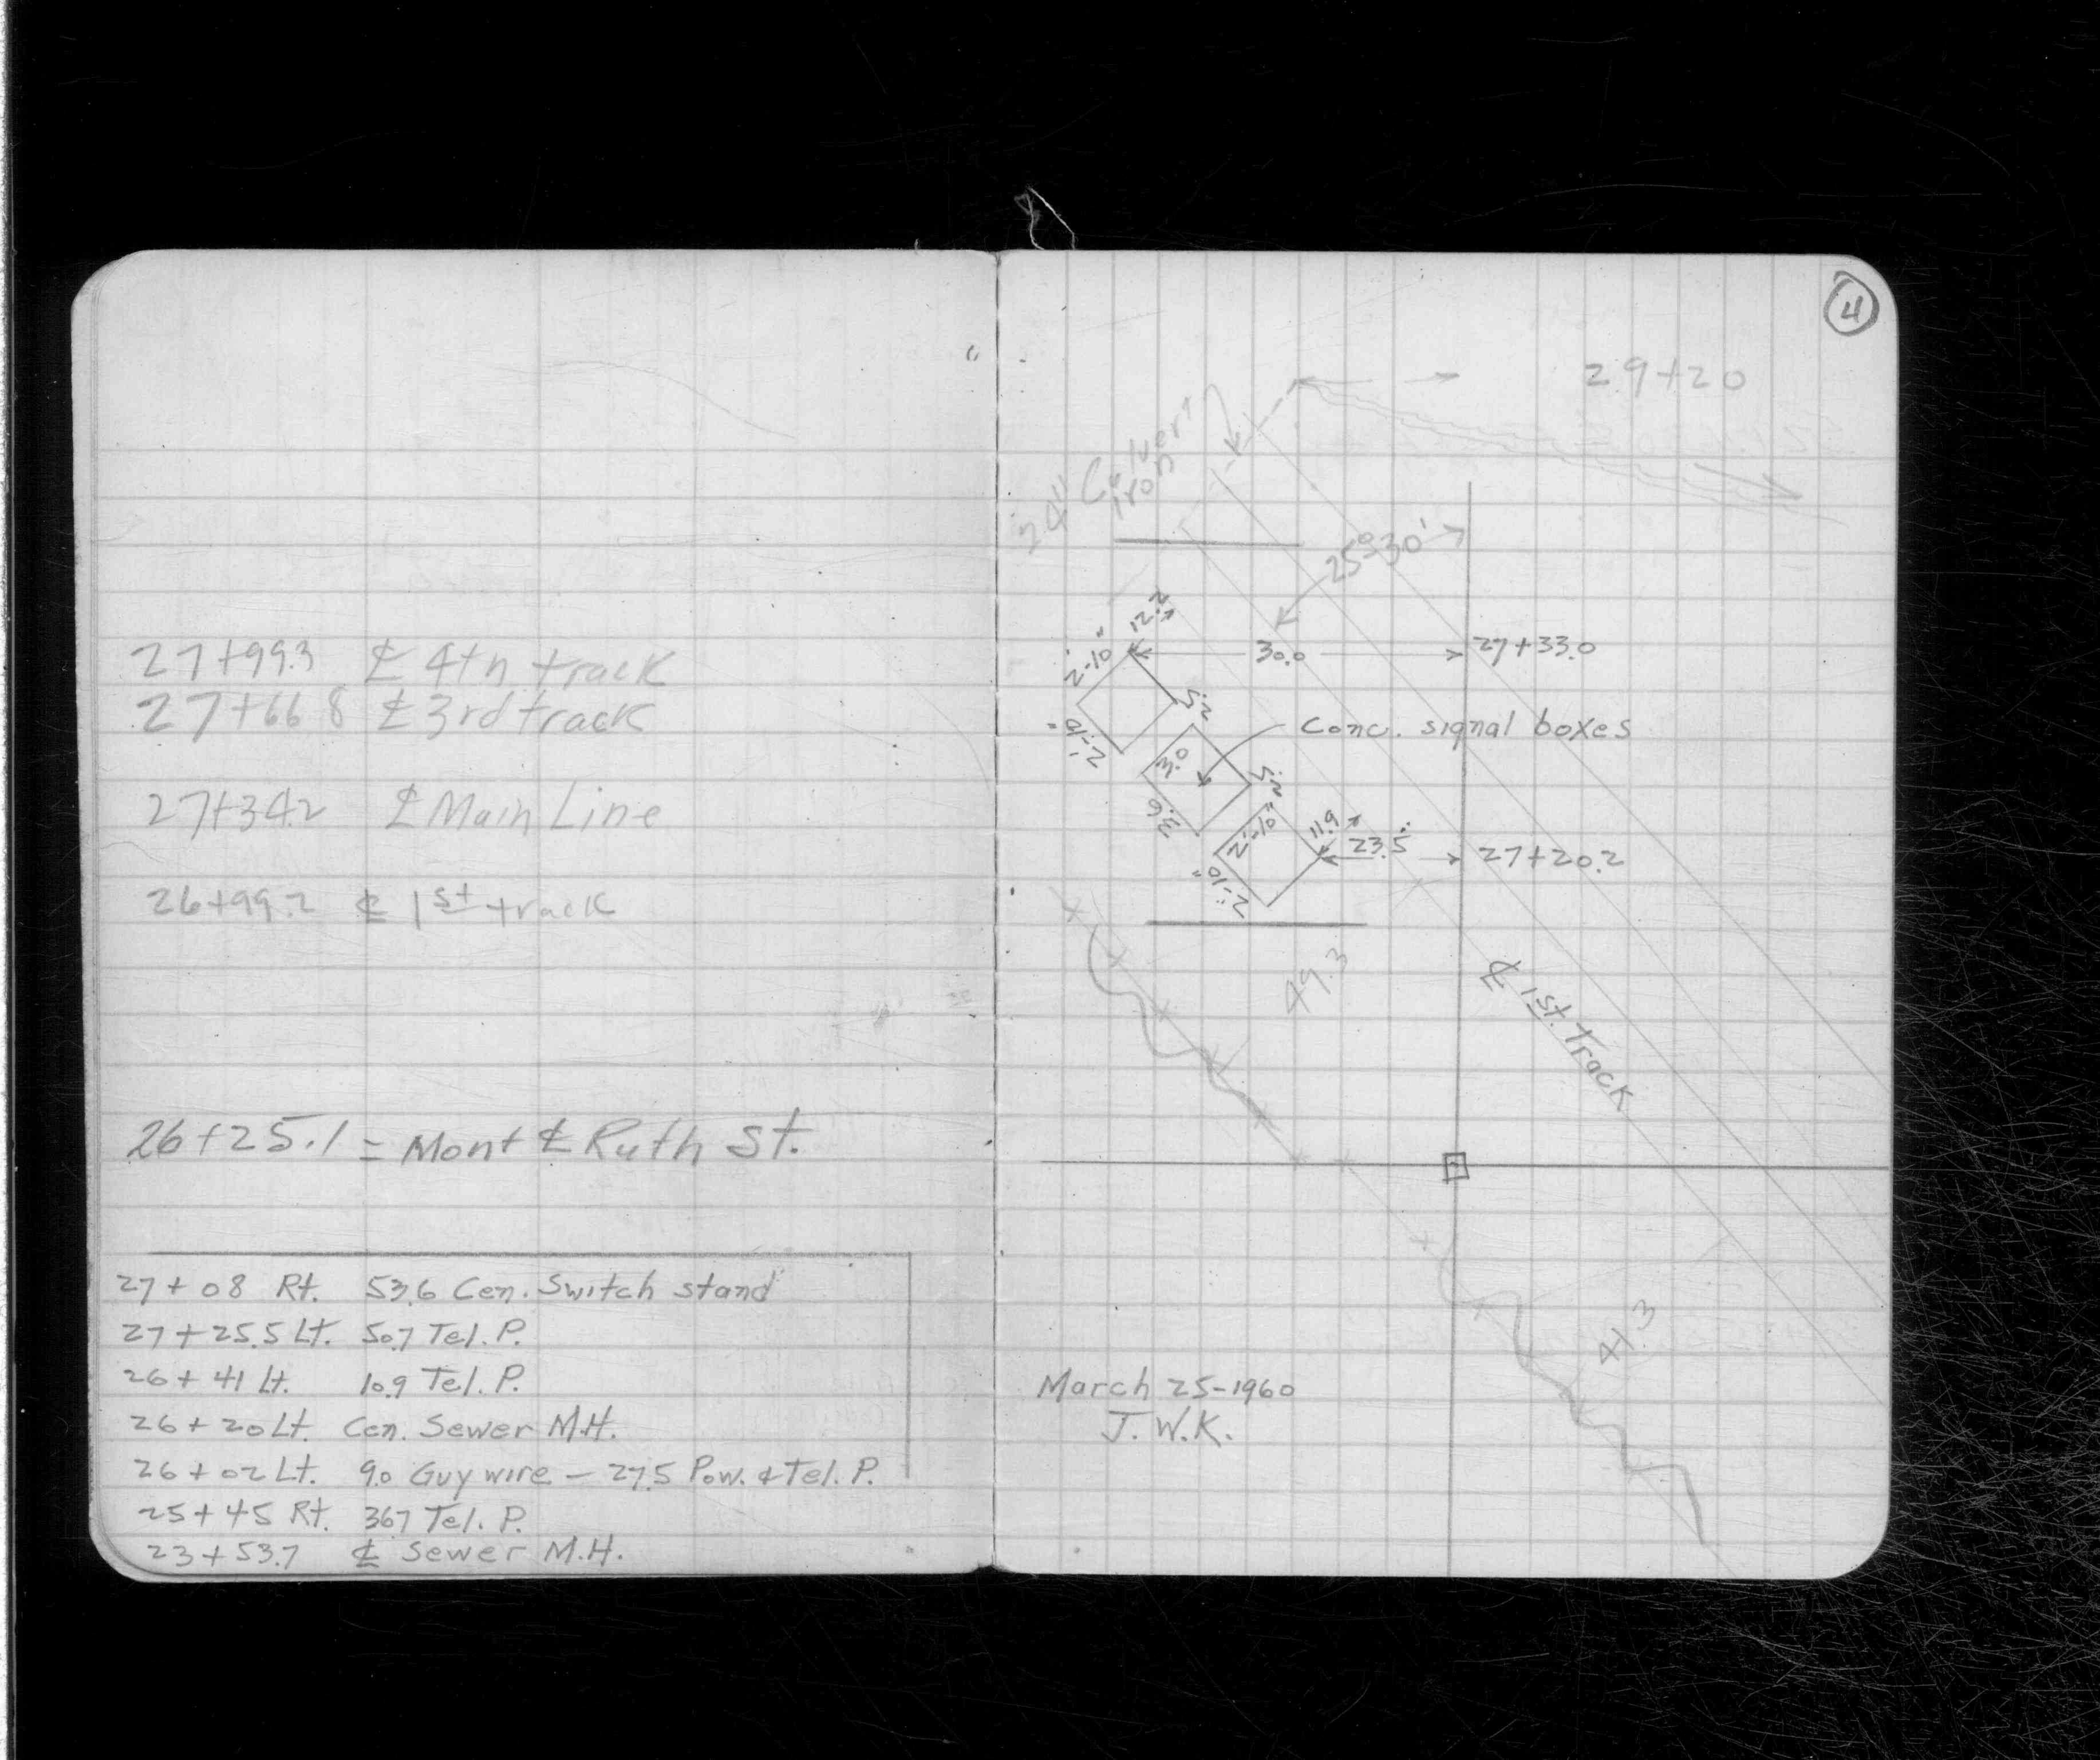 27+99.3 ℄ 4th track
27+66.8 ℄ 3rd track
27+34.2 ℄ Main Line
26+99.2 ℄ 1st track
26+25.1 = Mont ℄ Ruth St.
27+08 Rt. 53.6 Cen. Switch stand
27+25.5 Lt. 50.7 Tel. P.
26+41 Lt. 10.9 Tel. P.
26+20 Lt. Cen. Sewer M.H.
26+02 Lt. 9.0 Guy wire - 27.5 Pow. & Tel. P.
25+45 Rt. 36.7 Tel. P.
23+53.7 ℄ Sewer M.H.
4
29+20
24" Culvert
Iron
25°30'
12.2
2'-10"
30.0
27+33.0
2'-10"
5.2
Conc. signal boxes
3.0
3.6
5.2
2'-10"
11.9
23.5
27+20.2
2'-10"
49.3
℄ 1st. Track
41.3
March 25-1960
J.W.K.